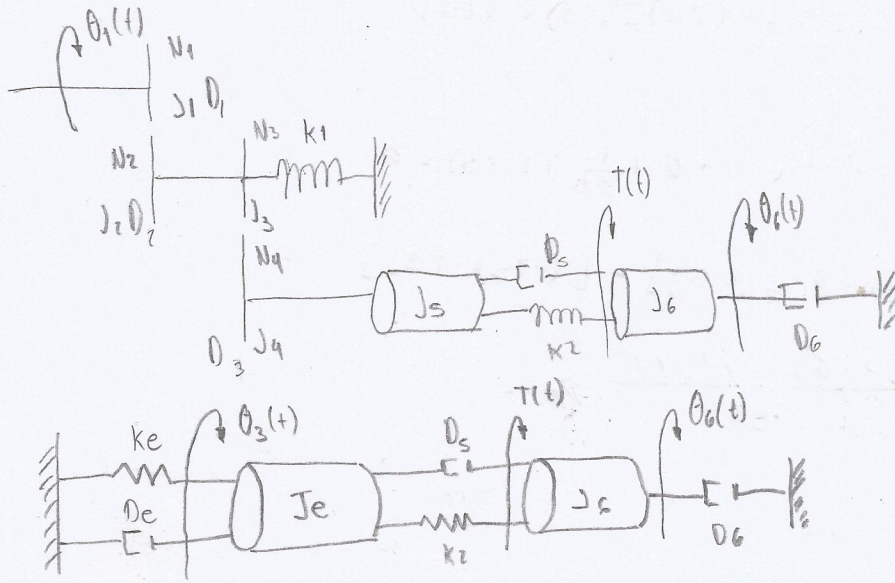 θ1(t)
N1
J1 D1
N2
J2 D2
N3 K1
J3
N4
D3 J4
J5
D5
K2
T(t)
J6
θ6(t)
D6
Ke
De
θ3(t)
Je
D5
K2
T(t)
J6
θ6(t)
D6